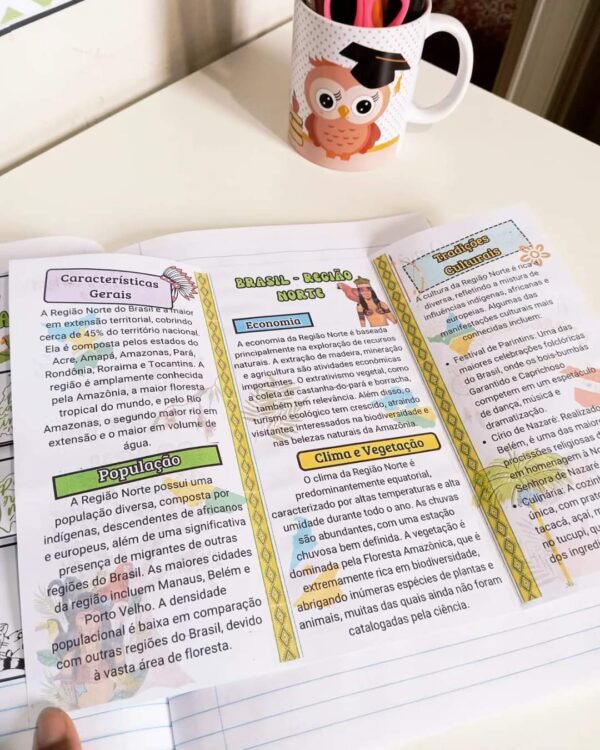 Características
Gerais
A Região Norte do Brasil é a maior
em extensão territorial, cobrindo
cerca de 45% do território nacional.
Ela é composta pelos estados do
Acre, Amapá, Amazonas, Pará,
Rondônia, Roraima e Tocantins. A
região é amplamente conhecida
pela Amazônia, a maior floresta
tropical do mundo, e pelo Rio
Amazonas, o segundo maior rio em
extensão e o maior em volume de
água.
População
A Região Norte possui uma
população diversa, composta por
indígenas, descendentes de africanos
e europeus, além de uma significativa
presença de migrantes de outras
regiões do Brasil. As maiores cidades
da região incluem Manaus, Belém e
Porto Velho. A densidade
populacional é baixa em comparação
com outras regiões do Brasil, devido
à vasta área de floresta.
BRASIL - REGIÃO
NORTE
Economia
A economia da Região Norte é baseada
principalmente na exploração de recursos
naturais. A extração de madeira, mineração
e agricultura são atividades econômicas
importantes. O extrativismo vegetal, como
a coleta de castanha-do-pará e borracha,
também tem relevância. Além disso, o
turismo ecológico tem crescido, atraindo
visitantes interessados na biodiversidade e
nas belezas naturais da Amazônia.
Clima e Vegetação
O clima da Região Norte é
predominantemente equatorial,
caracterizado por altas temperaturas e alta
umidade durante todo o ano. As chuvas
são abundantes, com uma estação
chuvosa bem definida. A vegetação é
dominada pela Floresta Amazônica, que é
extremamente rica em biodiversidade,
abrigando inúmeras espécies de plantas e
animais, muitas das quais ainda não foram
catalogadas pela ciência.
Tradições
Culturais
A cultura da Região Norte é rica e
diversa, refletindo a mistura de
influências indígenas, africanas e
europeias. Algumas das
manifestações culturais mais
conhecidas incluem:
• Festival de Parintins: Uma das
maiores celebrações folclóricas
do Brasil, onde os bois-bumbás
Garantido e Caprichoso
competem em um espetáculo
de dança, música e
dramatização.
• Círio de Nazaré: Realizado
Belém, é uma das maiores
procissões religiosas d
em homenagem à No
Senhora de Nazaré
• Culinária: A cozin
única, com prato
tacacá, açaí, m
no tucupi, qu
dos ingredi